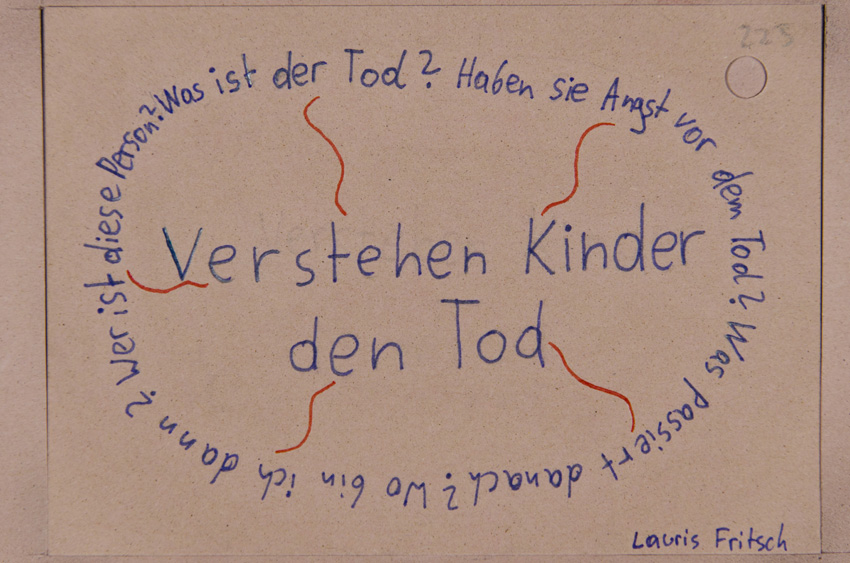 223
Was ist der Tod? Haben sie Angst vor dem Tod? Was passiert danach? Wo bin ich dann? Wer ist diese Person?
Verstehen Kinder
den Tod
Lauris Fritsch